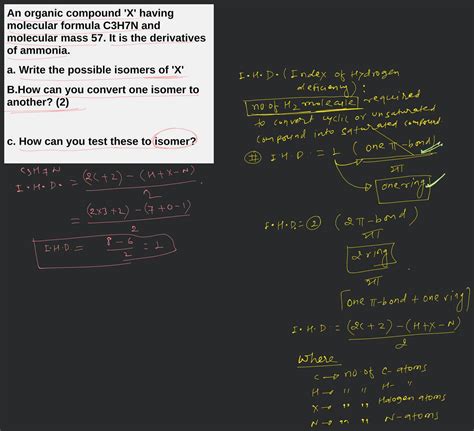 An organic compound 'X' having
molecular formula C3H7N and
molecular mass 57. It is the derivatives
of ammonia.
a. Write the possible isomers of 'X'
B.How can you convert one isomer to
another? (2)
c. How can you test these to isomer?
C3H7N
I.H.D. = (2C+2) - (H+X-N) / 2
= (2x3+2) - (7+0-1) / 2
I.H.D = 8-6 / 2 = 1
I.H.D. (Index of Hydrogen
deficiency) :
no of H2 molecule required
to convert cyclic or unsaturated
compound into saturated compound
# I.H.D = 1 (one π-bond)
या
one ring
I.H.D = 2 (2π-bond)
या
2 ring
या
one π-bond + one ring
I.H.D = (2C+2) - (H+X-N) / 2
Where
C → no of C-atoms
H → " " H- "
X → " " Halogen atoms
N → " " N-atoms